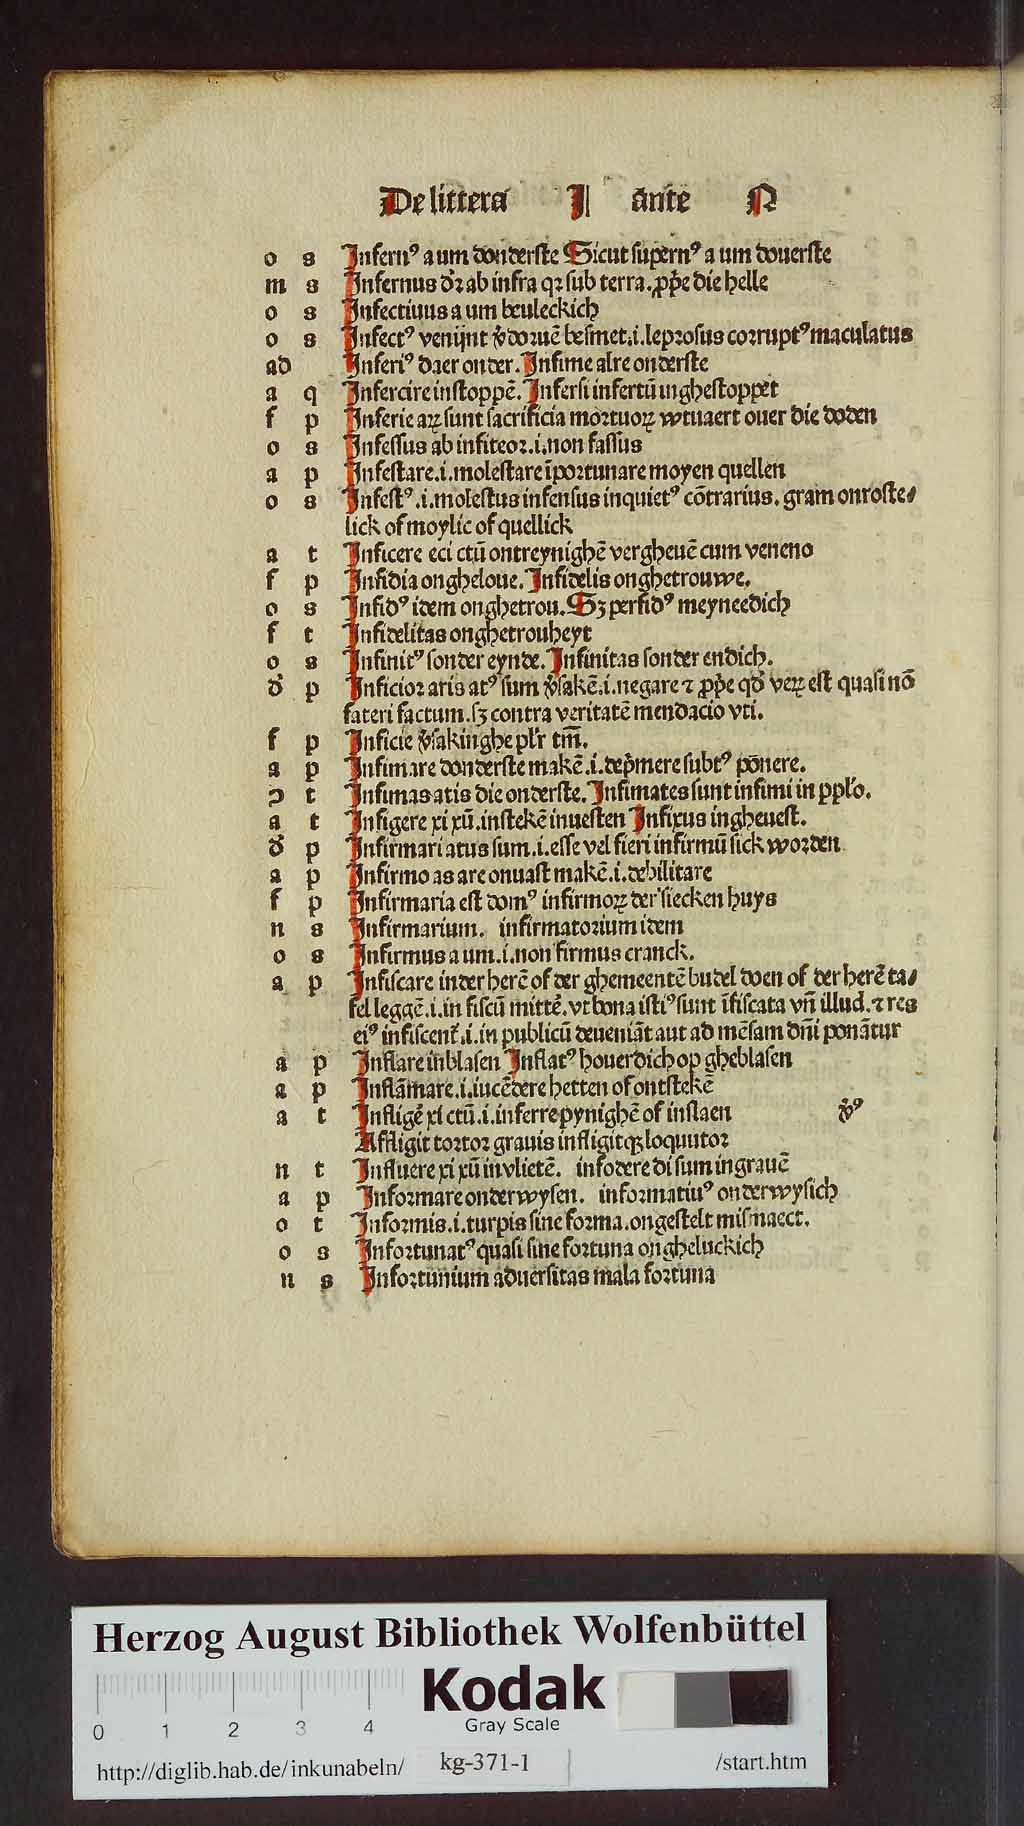 De littera I ante N
o s Infernꝰ a um donderste Sicut supernꝰ a um douerste
m s Infernus dꝛ̄ ab infra qꝛ sub terra. ꝓp̄e die helle
o s Infectiuus a um beuleckich
o s Infectꝰ venijnt v̾doruē besmet .i. leprosus corruptꝰ maculatus
ad Inferiꝰ daer onder. Infime alre onderste
a q Infercire instoppē. Infersi infertū ingestoppet
f p Inferie aꝝ sunt sacrificia mortuoꝝ wtuaert ouer die doden
o s Infessus ab infiteor .i. non fassus
a p Infestare .i. molestare īportunare moyen quellen
o s Infestꝰ .i. molestus infensus inquietꝰ cōtrarius. gram onroste⸗
lick of moylic of quellick
a t Inficere eci ctū ontreynighē vergheuē cum veneno
f p Infidia ongheloue. Infidelis onghetrouwe.
o s Infidꝰ idem onghetrou. Sꝫ perfidꝰ meyneedich
f t Infidelitas onghetrouheyt
o s Infinitꝰ sonder eynde. Infinitas sonder endich.
d̾ p Inficior aris atꝰ sum v̾sakē .i. negare ⁊ ꝓp̄e qd̾ veꝝ est quasi nō
fateri factum. sꝫ contra veritatē mendacio vti.
f p Inficie v̾sakinghe pl̾r tm̄.
a p Infimare donderste makē .i. dep̄mere subtꝰ pōnere.
ꝯ t Infimas atis die onderste. Infimates sunt infimi in ppl̾o.
a t Infigere xi xū. instekē inuesten Infixus ingheuest.
d̾ p Infirmari atus sum .i. esse vel fieri infirmū sick worden
a p Infirmo as are onuast makē .i. debilitare
f p Infirmaria est domꝰ infirmoꝝ der siecken huys
n s Infirmarium. infirmatorium idem
o s Infirmus a um .i. non firmus cranck.
a p Infiscare inder herē of der ghemeentē budel doen of der herē ta⸗
fel leggē .i. in fiscū mittē. vt bona istiꝰ sunt īfiscata vn̄ illud. ⁊ res
eiꝰ infiscent᷑ .i. in publicū deueniāt aut ad mēsam dn̄i ponātur
a p Inflare inblasen Inflatꝰ houerdich op gheblasen
a p Inflāmare .i. incēdere hetten of ontstekē
a t Infligē xi ctū .i. inferre pynighē of inslaen v̾ꝰ
Affligit tortor grauis infligitqꝫ loquutor
n t Influere xi xū invlietē. infodere di sum ingrauē
a p Informare onderwysen. informatiuꝰ onderwysich
o t Informis .i. turpis sine forma. ongestelt mismaect.
o s Infortunatꝰ quasi sine fortuna ongheluckich
n s Infortunium aduersitas mala fortuna
Herzog August Bibliothek Wolfenbüttel
Kodak
Gray Scale
0 1 2 3 4
http://diglib.hab.de/inkunabeln/ kg-371-1 /start.htm